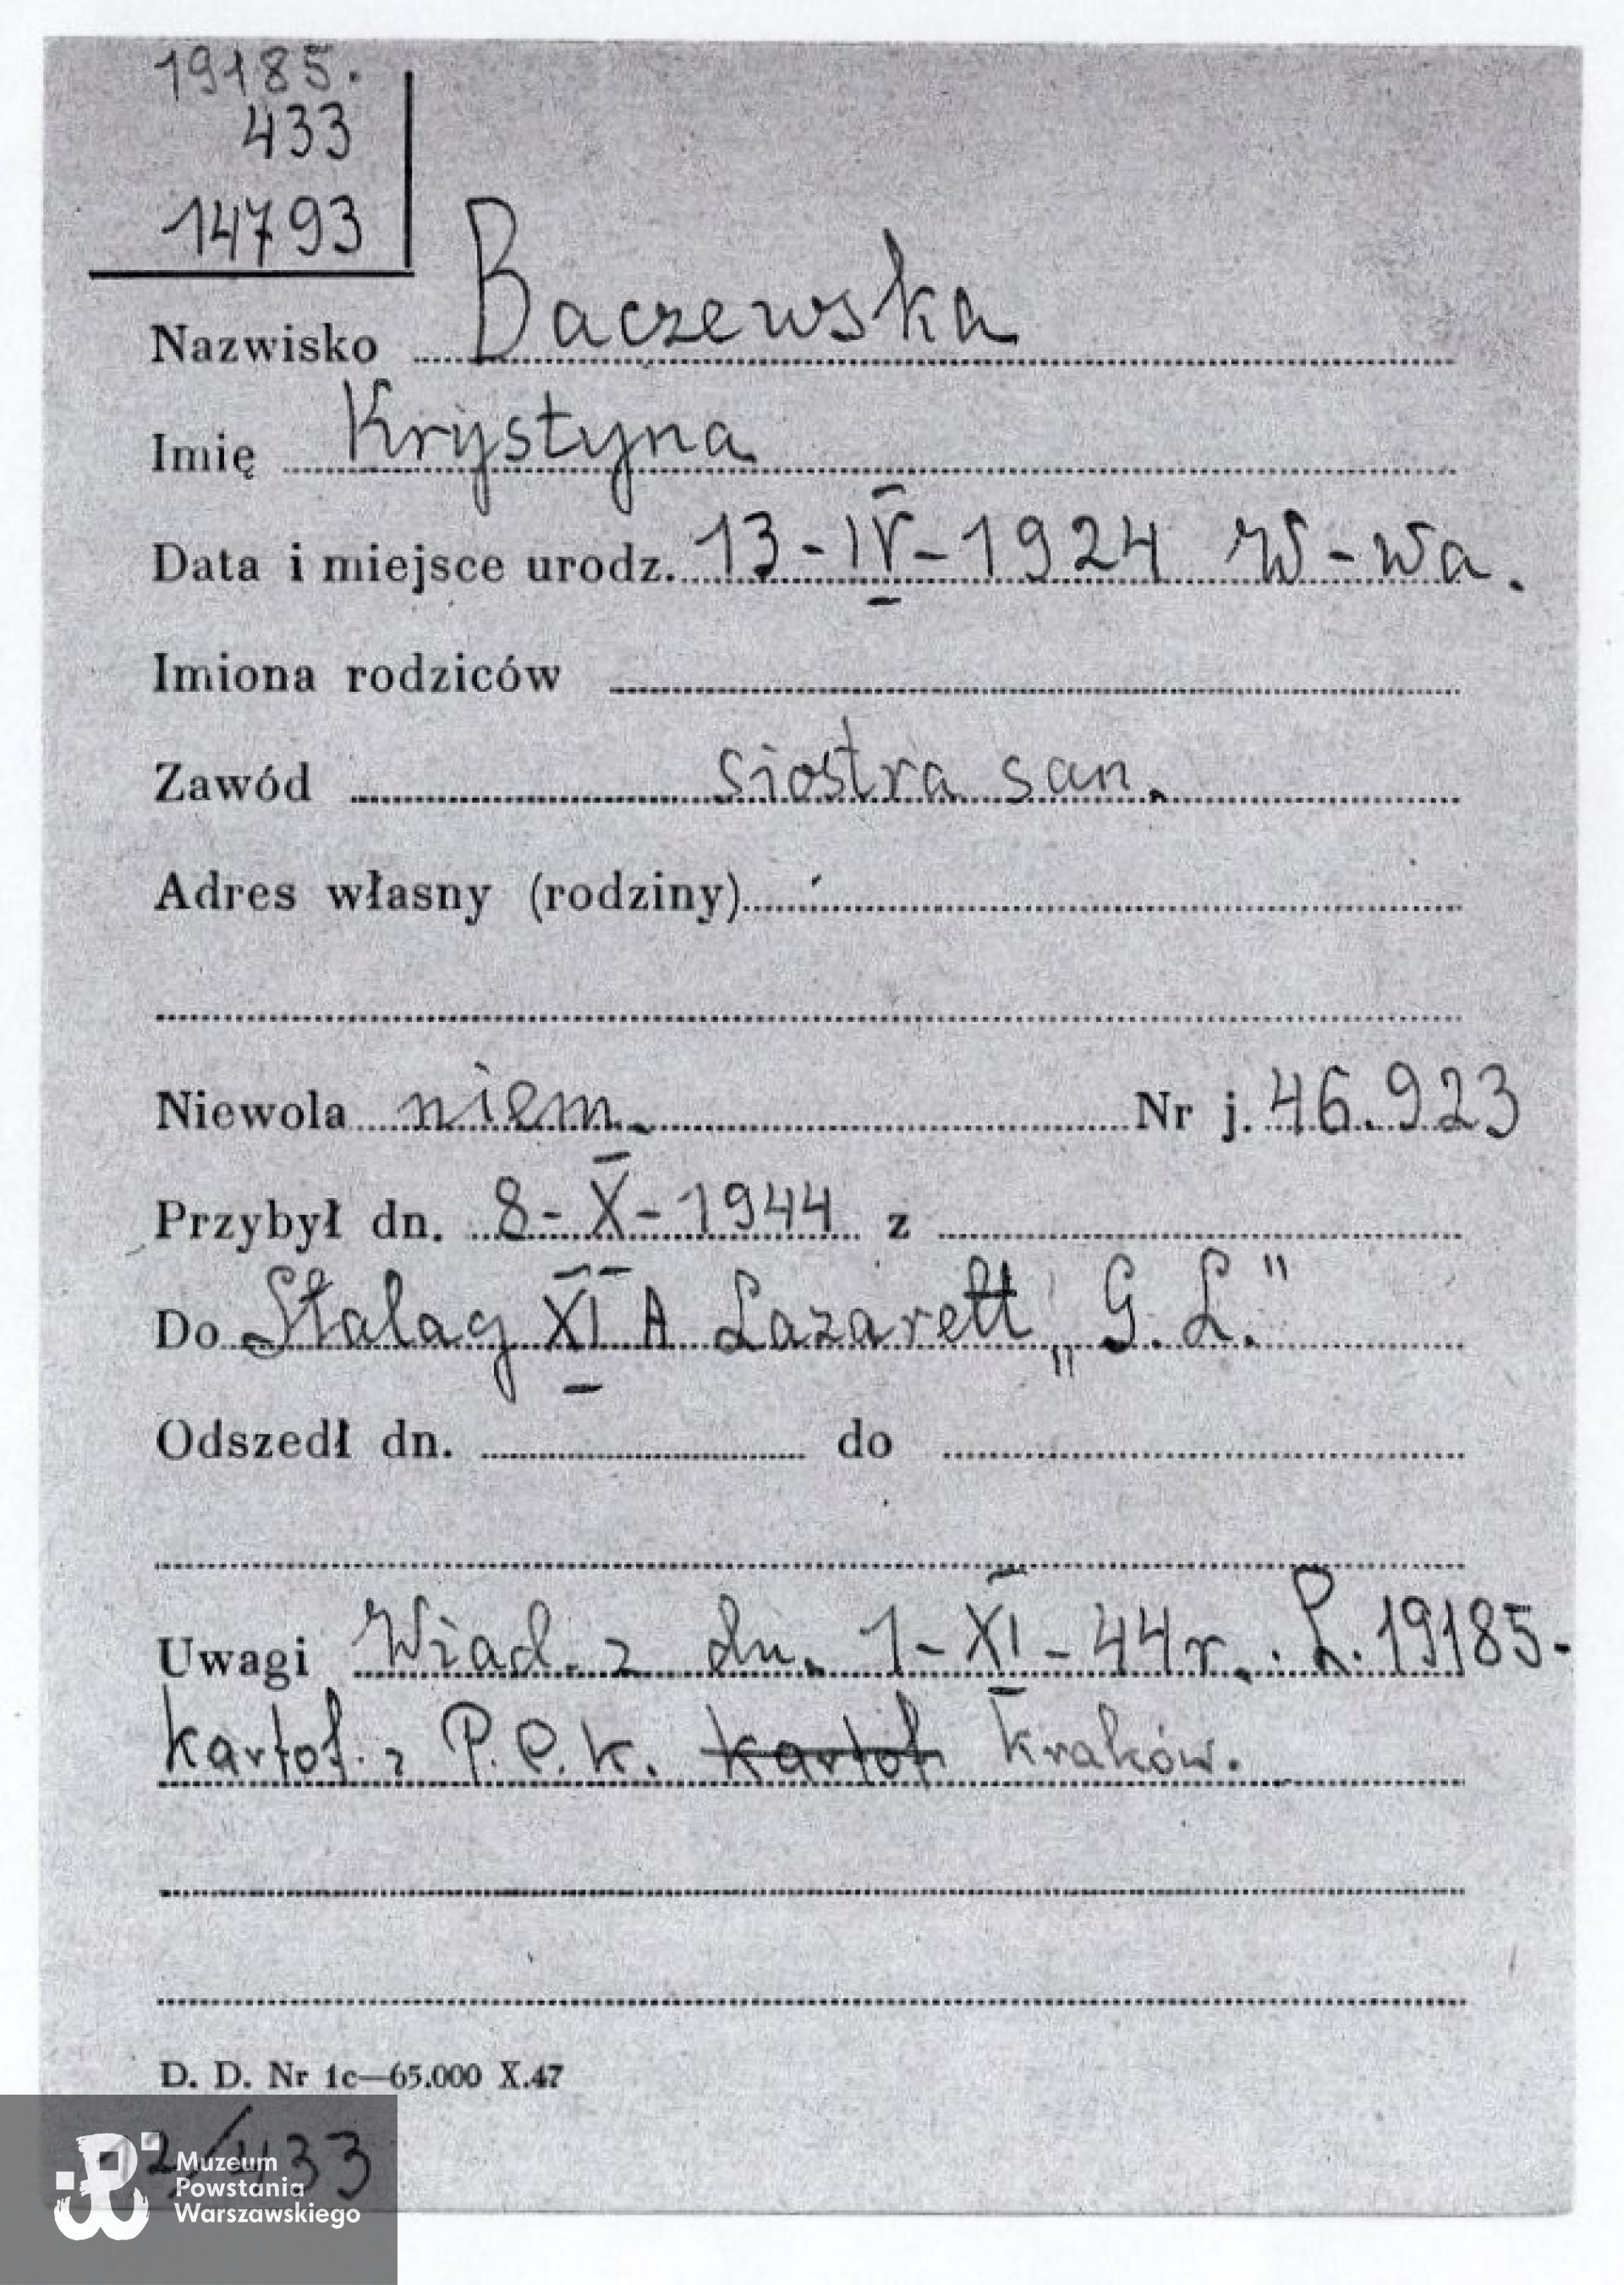 19185.
433
14793
Nazwisko Baczewska
Imię Krystyna
Data i miejsce urodz. 13-IV-1924 W-wa.
Imiona rodziców
Zawód siostra san.
Adres własny (rodziny)
Niewola niem. Nr j. 46.923
Przybył dn. 8-X-1944 z
Do Stalag XI A Lazarett „G.L."
Odszedł dn. do
Uwagi Wiad. z dn. 1-XI-44r. L. 19185-
kartof. z P.C.K. kartof Kraków.
D. D. Nr 1c—65.000 X.47
12/433
Muzeum
Powstania
Warszawskiego